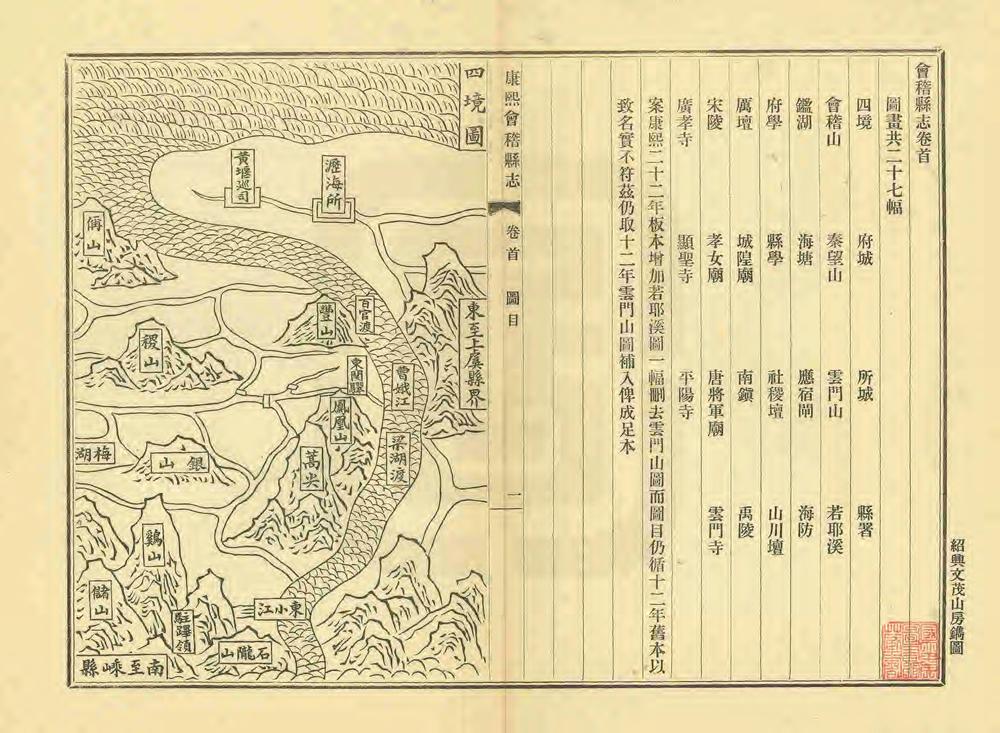 會稽縣志卷首
圖畫共二十七幅
四境 府城 所城 縣署
會稽山 秦望山 雲門山 若耶溪
鑑湖 海塘 應宿閘 海防
府學 縣學 社稷壇 山川壇
厲壇 城隍廟 南鎭 禹陵
宋陵 孝女廟 唐將軍廟 雲門寺
廣孝寺 顯聖寺 平陽寺
案康熙二十二年板本增加若耶溪圖一幅刪去雲門山圖而圖目仍循十二年舊本以
致名實不符茲仍取十二年雲門山圖補入俾成足本
紹興文茂山房鐫圖
康熙會稽縣志
卷首
圖目
一
四境圖
東至上虞縣界
瀝海所
黃堰巡司
偁山
百官渡
豐山
稷山
東關驛
曹娥江
鳳凰山
梁湖渡
蒿尖
梅湖
銀山
鷄山
儲山
東小江
駐蹕嶺
石隴山
南至嵊縣